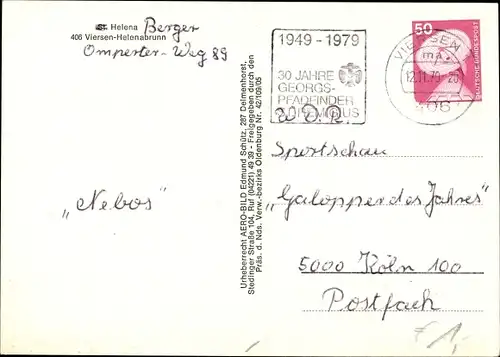 St. Helena Berger
406 Viersen-Helenabrunn
Omperter-Weg 89
"Nebos"
Urheberrecht AERO-BILD Edmund Schütz, 287 Delmenhorst,
Stedinger Straße 104, Ruf (04221) 49 39 - Freigegeben durch den
Präs. d. Nds. Verw.-bezirks Oldenburg Nr. 42/109/05
1949-1979
30 JAHRE
GEORGS-
PFADFINDER
50
DEUTSCHE BUNDESPOST
VIERSEN
12.11.79
406
W.D.R.
Sportschau
"Galopper des Jahres"
5000 Köln 100
Postfach